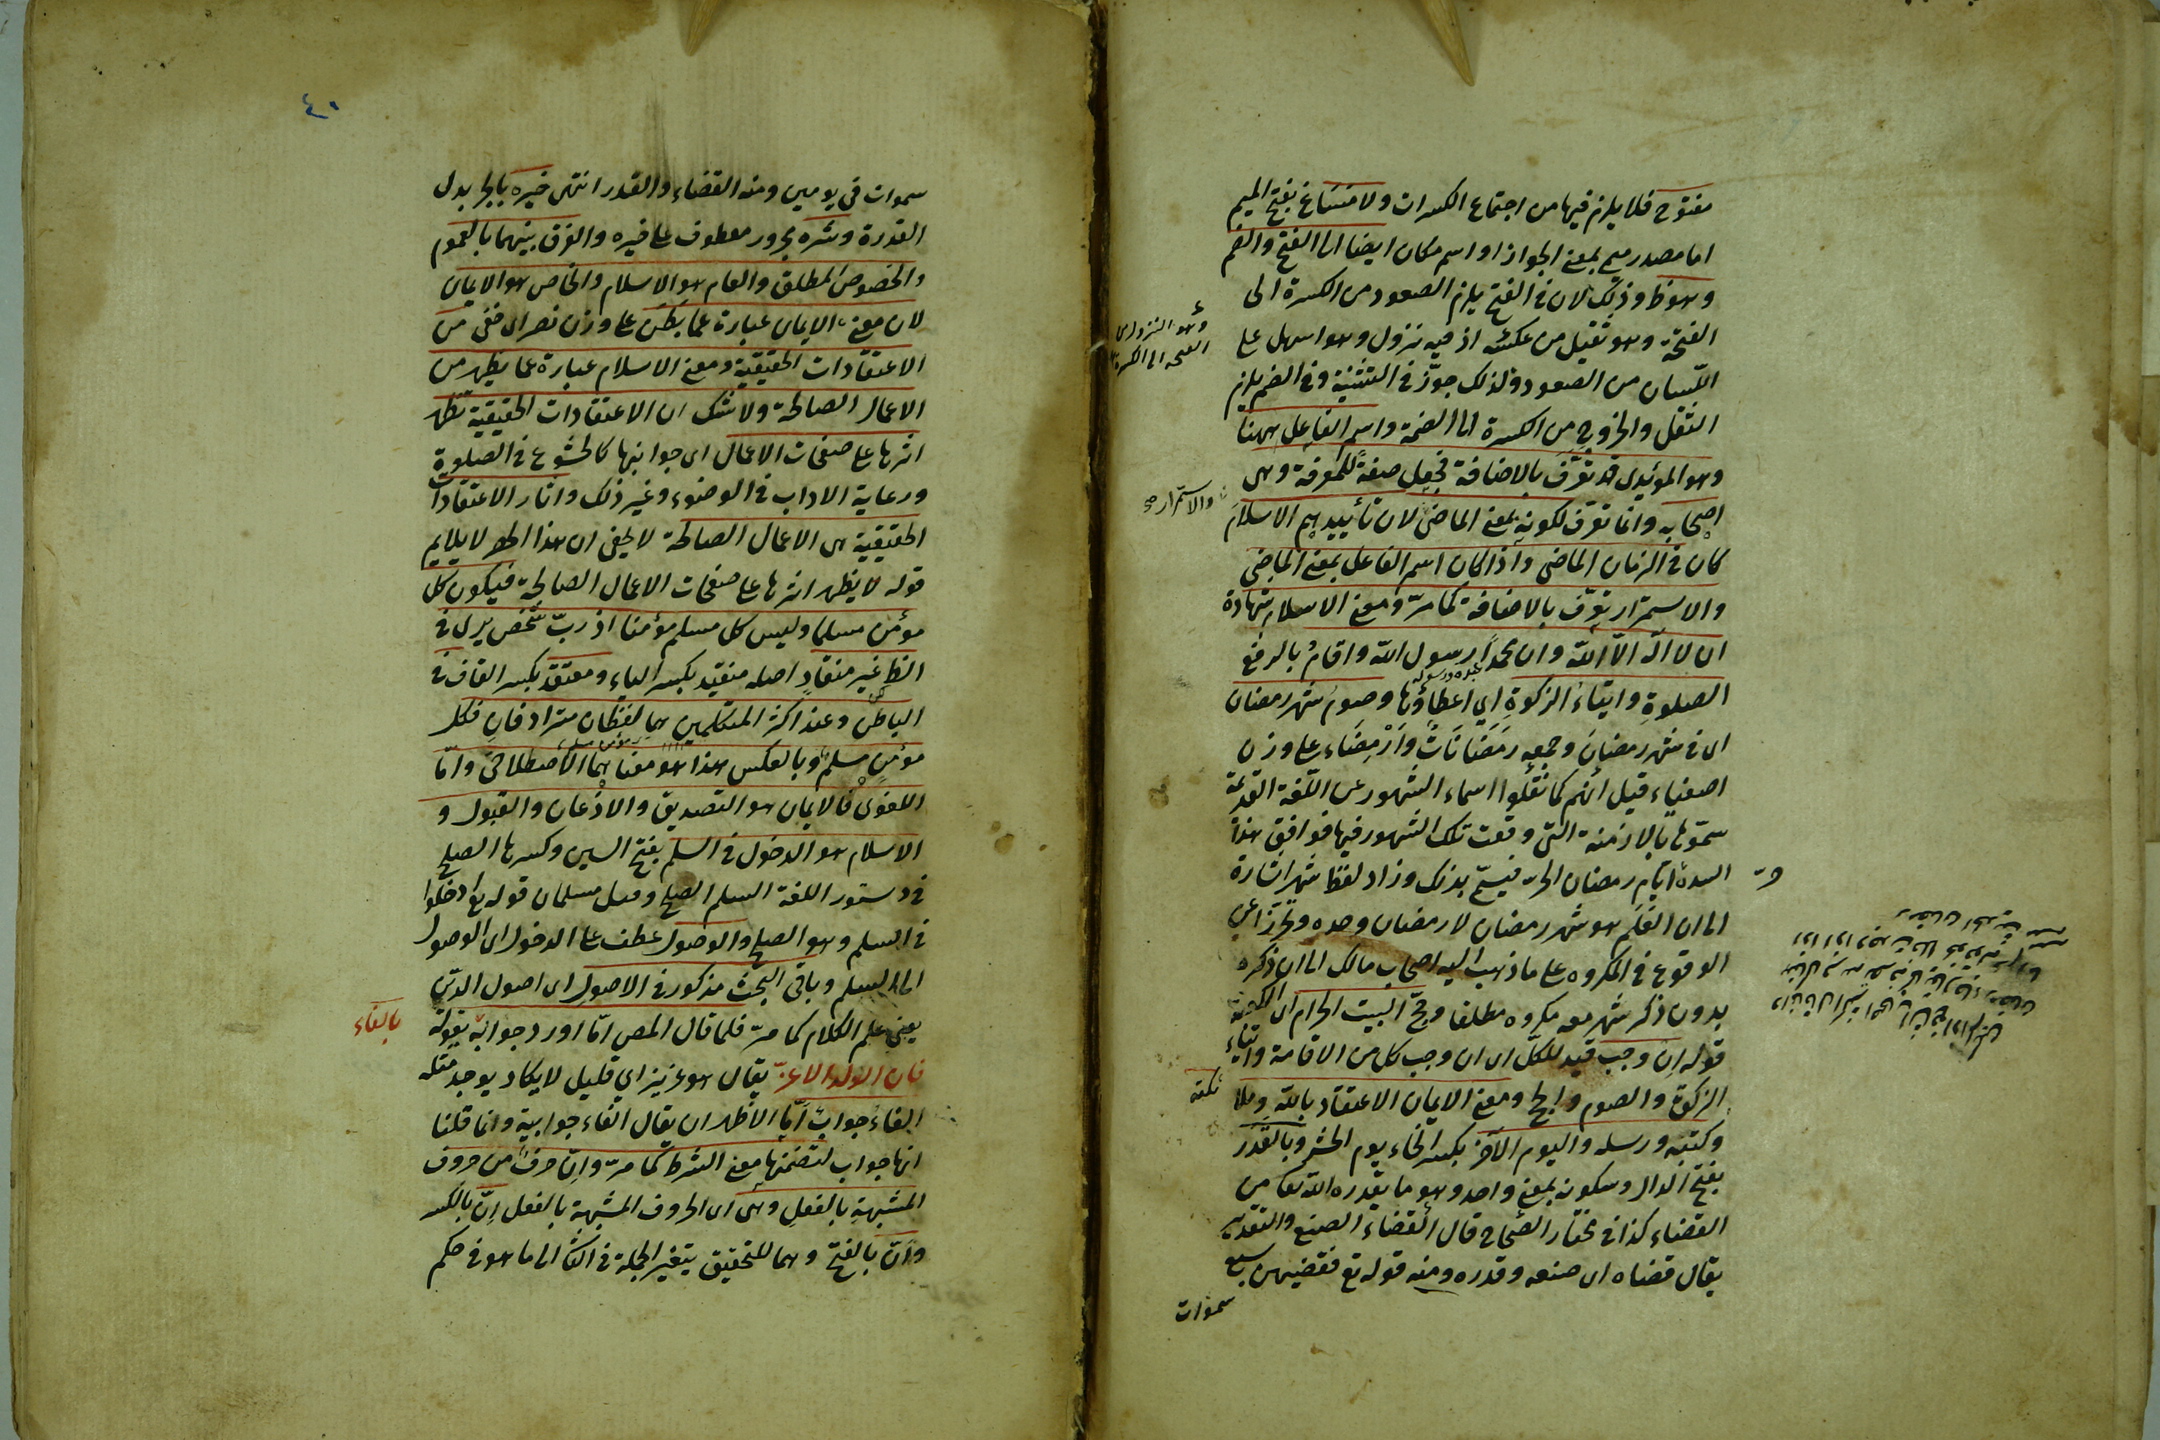 مفتوح فلا يلزم فيها من اجتماع الكسرات ولا مساغ بفتح الميم
اما مصدر ميمى بمعنى الجواز او اسم مكان ايضا اما الفتح والضم
وهو ظ وذلك لان فى الفتح يلزم الصعود من الكسرة الى
الفتحة وهو ثقيل من عكسه اذ فيه نزول وهو اسهل على
اللسان من الصعود ولذلك جوّز فى التثنية وفى الضم يلزم
الثقل والخروج من الكسرة الى الضمة واسم الفاعل ههنا
وهو المؤيدى قد تعرّف بالاضافة فجعل صفةً للمعرفة وهى
اصحابه وانما تعرّف لكونه بمعنى الماضى لان تأييدهم الاسلامَ
كان فى الزمان الماضى واذا كان اسم الفاعل بمعنى الماضى
والاستمرار تعرّف بالاضافة كما مرّ ومعنى الاسلام شهادة
ان لا اله الّا الله وان محمداً رسول الله واقامُ بالرفع
عبده ورسوله
الصلوةِ وايتاءُ الزكوةِ اي اعطاؤها وصومُ شهر رمضان
اى فى شهر رمضانَ وجمعه رَمَضَانَاتٌ وأَرْمِضَاء على وزن
اصفياء قيل أنهم كما نقلوا اسماء الشهور عن اللغة القديمة
سمّوها بالازمنة التى وقعت تلك الشهور فيها فوافق هذا
ايام رمضان الحرّ فسمّى بذلك وزاد لفظ شهر اشارة
الى ان العَلَم هو شهر رمضان لا رمضان وحده وتحرّزا عن
الوقوع فى المكروه على ما ذهب اليه اصحاب مالك الى ان ذكره
بدون ذكر شهر معه مكروه مطلقا وحجّ البيت الحرام اى الكعبة
قوله ان وجب قيد للكلّ اى ان وجب كل من الاقامة وايتاء
الزكوة والصوم والحج ومعنى الايمان الاعتقاد بالله وملا
ئكته
وكتبه ورسله واليوم الآخِر بكسر الخاء يوم الحشر وبالقَدَر
بفتح الدال وسكونه بمعنى واحد وهو ما يقدره الله تعا من
القضاء كذا فى مختار الصحاح قال القضاء الصنع والتقدير
يقال قضاه اى صنعه وقدره ومنه قوله تع فقضيهن سبع
سموات
وهو النزول من
الفتحة الى الكسرة
والاستمرار صح
٤٠
سموات فى يومين ومنه القضاء والقدر انتهى خيرِه بالجر بدل
القدرة وشرِّه مجرور معطوف على خيره والفرق بينهما بالعموم
والخصوص المطلق والعام هو الاسلام والخاص هو الايمان
لان معنى الايمان عبارة عما بَطَنَ على وزن نصر اى خفى من
الاعتقادات الحقيقية ومعنى الاسلام عبارة عما يظهر من
الاعمال الصالحة ولا شك ان الاعتقادات الحقيقية تظهر
اثرها على صفحات الاعمال اى جوانبها كالخشوع فى الصلوة
ورعاية الاداب فى الوضوء وغير ذلك واثار الاعتقادات
الحقيقية هى الاعمال الصالحة لا يخفى ان هذا لا يلايم
قوله لا يظهر اثرها على صفحات الاعمال الصالحة فيكون كل
مؤمن مسلما وليس كل مسلم مؤمنا اذ ربّ شخص يرى فى
الظا غير منقادٍ اصله منقيِد بكسر الياء ومعتقد بكسر القاف فى
الباطن وعند اكثر المتكلمين هما لفظان مترادفان فكل
مؤمنٍ مسلم وبالعكس هذا هو معناهما الاصطلاحى وامّا
اللغوى فالايمان هو التصديق والاذعان والقبول و
الاسلام هو الدخول فى السلم بفتح السين وكسرها الصلح
فى دستور اللغة السلم الصلح قوله تع ادخلوا
فى السلم وهو الصلح والوصول عطف على الدخول اى الوصول
الى السلم وباقى البحث مذكور فى الاصول اى اصول الدين
يعنى علم الكلام كما مرّ فلما قال المص امّا اورد جوابه بقوله
بالفاء
فان الولد الاعزّ يقال هو عزيز اي قليل لا يكاد يوجد مثله
الفاء جواب أمّا الاظهر ان يقال الفاء جوابية وانما قلنا
انها جواب لتضمنها معنى الشرط كما مرّ وانّ حرف من حروف
المشبهة بالفعل وهى اى الحروف المشبهة بالفعل إنّ بالكسر
وأنّ بالفتح وهما للتحقيق يتغير الجملة فى الثا الى ما هو فى حكم